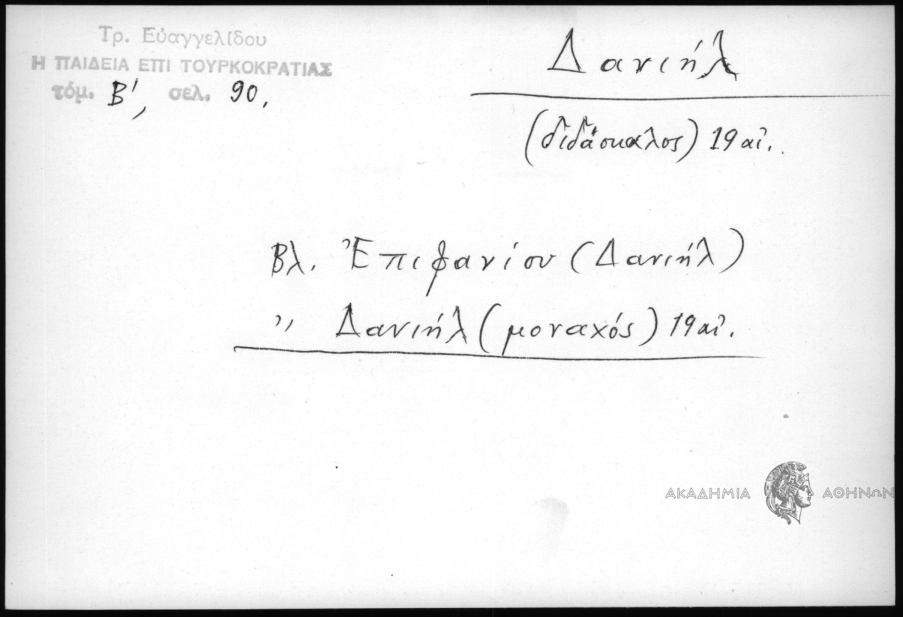 Τρ. Εὐαγγελίδου
Η ΠΑΙΔΕΙΑ ΕΠΙ ΤΟΥΡΚΟΚΡΑΤΙΑΣ
τόμ. Β', σελ. 90.
Δανιήλ
(διδάσκαλος) 19 αἰ.
Βλ. Ἐπιφανίου (Δανιήλ)
" Δανιήλ (μοναχός) 19 αἰ.
ΑΚΑΔΗΜΙΑ ΑΘΗΝΩΝ